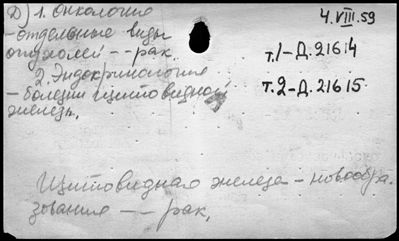 Д) 1. Онкология
4.VIII.59
- отдельные виды
опухолей - - рак.
т.1-Д.21614
2. Эндокринология
т.2-Д.21615
- болезни щитовидной
железы.
Щитовидная железа - новообра-
зования - - рак.